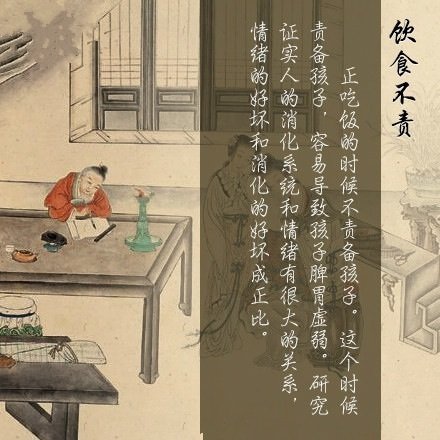 饮食不责
正吃饭的时候不责备孩子。这个时候
责备孩子，容易导致孩子脾胃虚弱。研究
证实人的消化系统和情绪有很大的关系，
情绪的好坏和消化的好坏成正比。